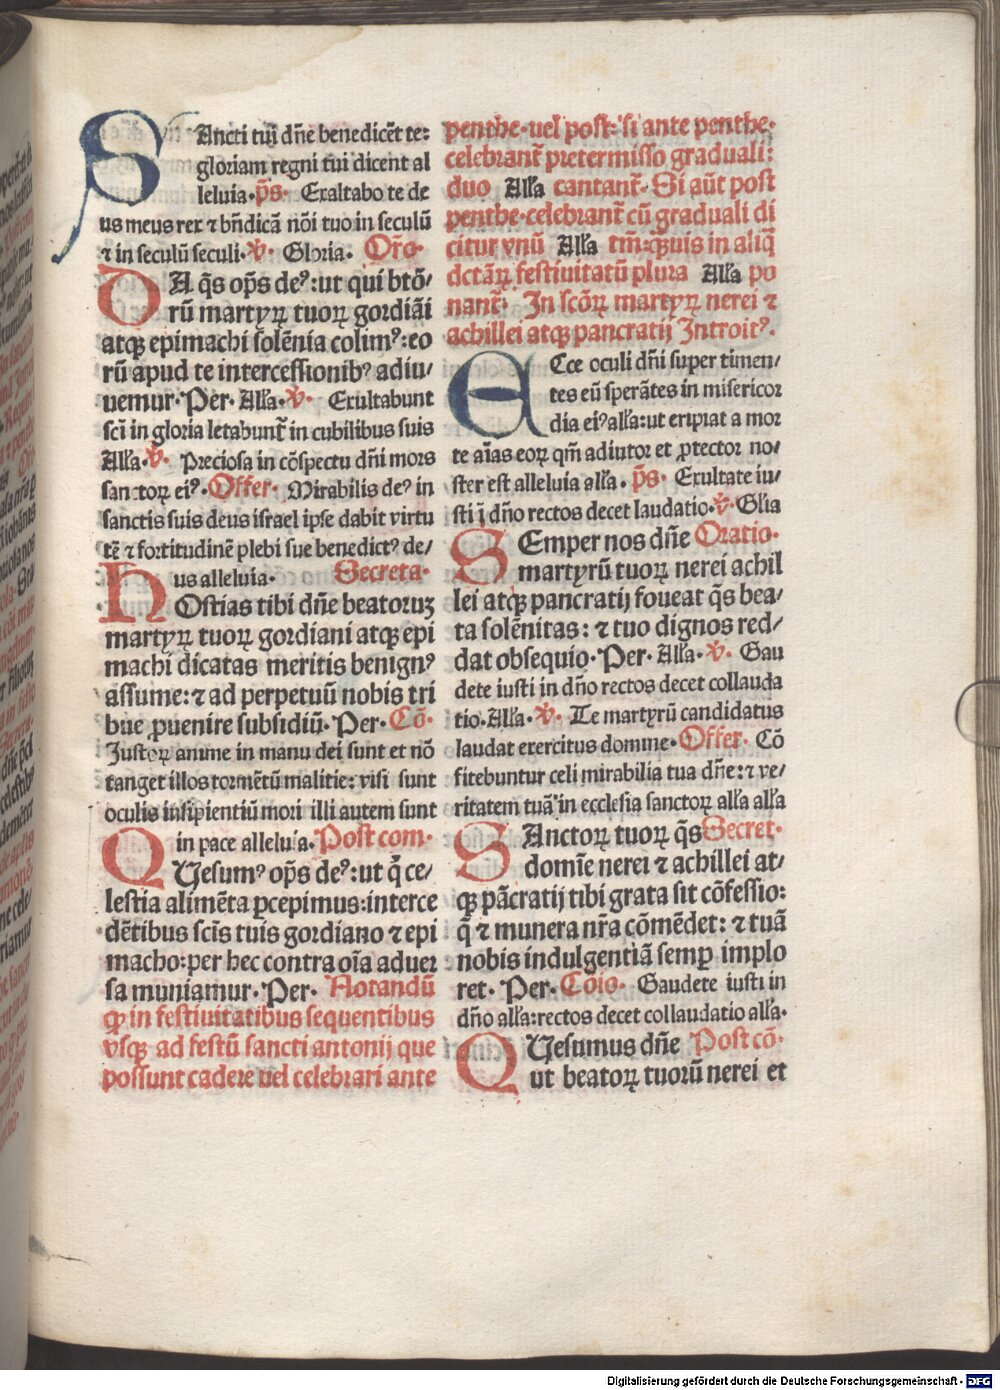 SAncti tui dñe benedicẽt te:
gloriam regni tui dicent al
leluia. p̃s. Exaltabo te de
us meus rex ⁊ bñdicã nõi tuo in seculũ
⁊ in seculũ seculi. ℣. Gloria. Oro.
DA q̃s op̃s deꝰ: ut qui btõ/
rũ martyrꝝ tuoꝝ gordiãi
atqꝫ epimachi solẽnia colimꝰ: eo
rũ apud te intercessionibꝰ adiu/
uemur. Per. Alľa. ℣. Exultabunt
scĩ in gloria letabunt̃ in cubilibus suis
Alľa. ℣. Preciosa in cõspectu dñi mors
sanctoꝝ eiꝰ. Offer. Mirabilis deꝰ in
sanctis suis deus israel ipse dabit virtu
tẽ ⁊ fortitudinẽ plebi sue benedictꝰ de/
us alleluia. Secreta.
HOstias tibi dñe beatoruꝫ
martyꝝ tuoꝝ gordiani atqꝫ epi
machi dicatas meritis benignꝰ
assume: ⁊ ad perpetuũ nobis tri
bue ꝓuenire subsidiũ. Per. Cõ.
Justoꝝ anime in manu dei sunt et nõ
tanget illos tormẽtũ malitie: visi sunt
oculis insipientiũ mori illi autem sunt
in pace alleluia. Post com.
QUesumꝰ op̃s deꝰ: ut q̃ ce/
lestia alimẽta ꝑcepimus: interce
dẽtibus scĩs tuis gordiano ⁊ epi
macho: per hec contra oĩa aduer
sa muniamur. Per. Notandũ
ꝙ in festiuitatibus sequentibus
vsqꝫ ad festũ sancti antonij que
possunt cadere uel celebrari ante
penthe. uel post: si ante penthe.
celebrant̃ pretermisso graduali:
duo Alľa cantant̃. Si aũt post
penthe. celebrant̃ cũ graduali di
citur vnũ Alľa tm̃. q̃uis in aliq̃
dctãꝝ festiuitatũ plura Alľa po
nant̃. In scõꝝ martyꝝ nerei ⁊
achillei atqꝫ pancratij Introitꝰ.
ECce oculi dñi super timen/
tes eũ sperãtes in misericor
dia eiꝰ alľa: ut eripiat a mor
te aĩas eoꝝ qm̃ adiutor et ꝓtector no/
ster est alleluia alľa. p̃s. Exultate iu/
sti ĩ dño rectos decet laudatio. ℣. Glia
SEmper nos dñe Oratio.
martyrũ tuoꝝ nerei achil
lei atqꝫ pancratij foueat q̃s bea/
ta solẽnitas: ⁊ tuo dignos red/
dat obsequio. Per. Alľa. ℣. Gau
dete iusti in dño rectos decet collauda
tio. Alľa. ℣. Te martyrũ candidatus
laudat exercitus domine. Offer. Cõ
fitebuntur celi mirabilia tua dñe: ⁊ ve/
ritatem tuã in ecclesia sanctoꝝ alľa alľa
SAnctoꝝ tuoꝝ q̃s Secret.
domĩe nerei ⁊ achillei at/
qꝫ pãcratij tibi grata sit cõfessio:
q̃ ⁊ munera nr̃a cõmẽdet: ⁊ tuã
nobis indulgentiã semꝑ implo
ret. Per. Coio. Gaudete iusti in
dño alľa: rectos decet collaudatio alľa.
QUesumus dñe Post cõ.
ut beatoꝝ tuorũ nerei et
Digitalisierung gefördert durch die Deutsche Forschungsgemeinschaft - DFG